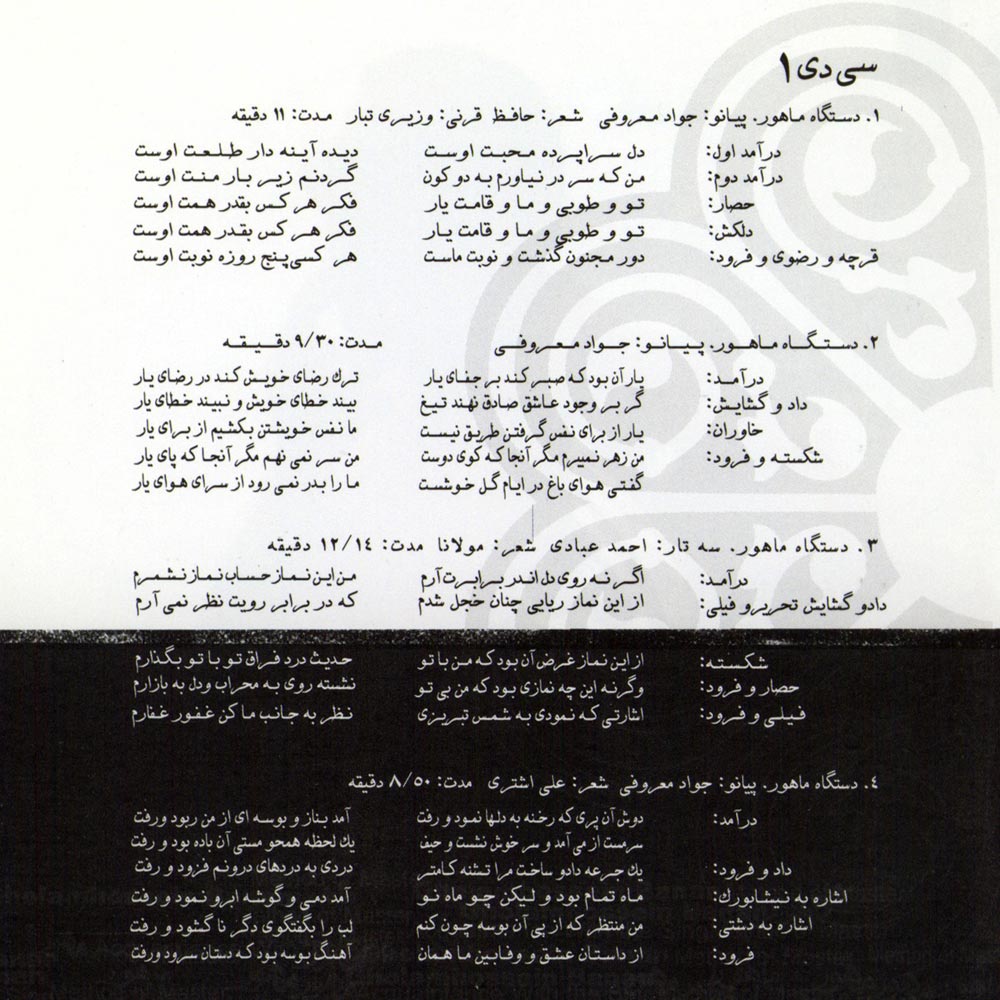 سی دی ۱
۱. دستگاه ماهور. پیانو: جواد معروفی شعر: حافظ قرنی: وزیری تبار مدت: ۱۱ دقیقه
درآمد اول: دل سراپرده محبت اوست دیده آینه دار طلعت اوست
درآمد دوم: من که سر در نیاورم به دو کون گردنم زیر بار منت اوست
حصار: تو و طوبی و ما و قامت یار فکر هر کس بقدر همت اوست
دلکش: تو و طوبی و ما و قامت یار فکر هر کس بقدر همت اوست
قرچه و رضوی و فرود: دور مجنون گذشت و نوبت ماست هر کسی پنج روزه نوبت اوست
۲. دستگاه ماهور. پیانو: جواد معروفی مدت: ۹/۳۰ دقیقه
درآمد: یار آن بود که صبر کند بر جفای یار ترک رضای خویش کند در رضای یار
داد و گشایش: گر بر وجود عاشق صادق نهند تیغ بیند خطای خویش و نبیند خطای یار
خاوران: یار از برای نفس گرفتن طریق نیست ما نفس خویشتن بکشیم از برای یار
شکسته و فرود: من زهر نمیرم مگر آنجا که کوی دوست من سر نمی نهم مگر آنجا که پای یار
گفتی هوای باغ در ایام گل خوشست ما را بدر نمی رود از سرای هوای یار
۳. دستگاه ماهور. سه تار: احمد عبادی شعر: مولانا مدت: ۱۲/۱٤ دقیقه
درآمد: اگر نه روی دل اندر برابرت آرم من این نماز حساب نماز نشمرم
دادو گشایش تحریرو فیلی: از این نماز ریایی چنان خجل شدم که در برابر رویت نظر نمی آرم
شکسته: ازاین نماز غرض آن بود که من با تو حدیث درد فراق تو با تو بگذارم
حصار و فرود: وگرنه این چه نمازی بود که من بی تو نشسته روی به محراب ودل به بازارم
فیلی و فرود: اشارتی که نمودی به شمس تبریزی نظر به جانب ما کن غفور غفارم
٤. دستگاه ماهور. پیانو: جواد معروفی شعر: علی اشتری مدت: ۸/۵۰ دقیقه
درآمد: دوش آن پری که رخنه به دلها نمود و رفت آمد بناز و بوسه ای از من ربود ورفت
سرمست از می آمد و سر خوش نشست و حیف یک لحظه همحو مستی آن باده بود و رفت
داد و فرود: یک جرعه دادو ساخت مرا تشنه کامتر دردی به دردهای درونم فزود و رفت
اشاره به نیشابورک: ماه تمام بود و لیکن چو ماه نو آمد دمی و گوشه ابرو نمود و رفت
اشاره به دشتی: من منتظر که از پی آن بوسه چون کنم لب را بگفتگوی دگر نا گشود و رفت
فرود: از داستان عشق و وفابین ما همان آهنگ بوسه بود که دستان سرود ورفت